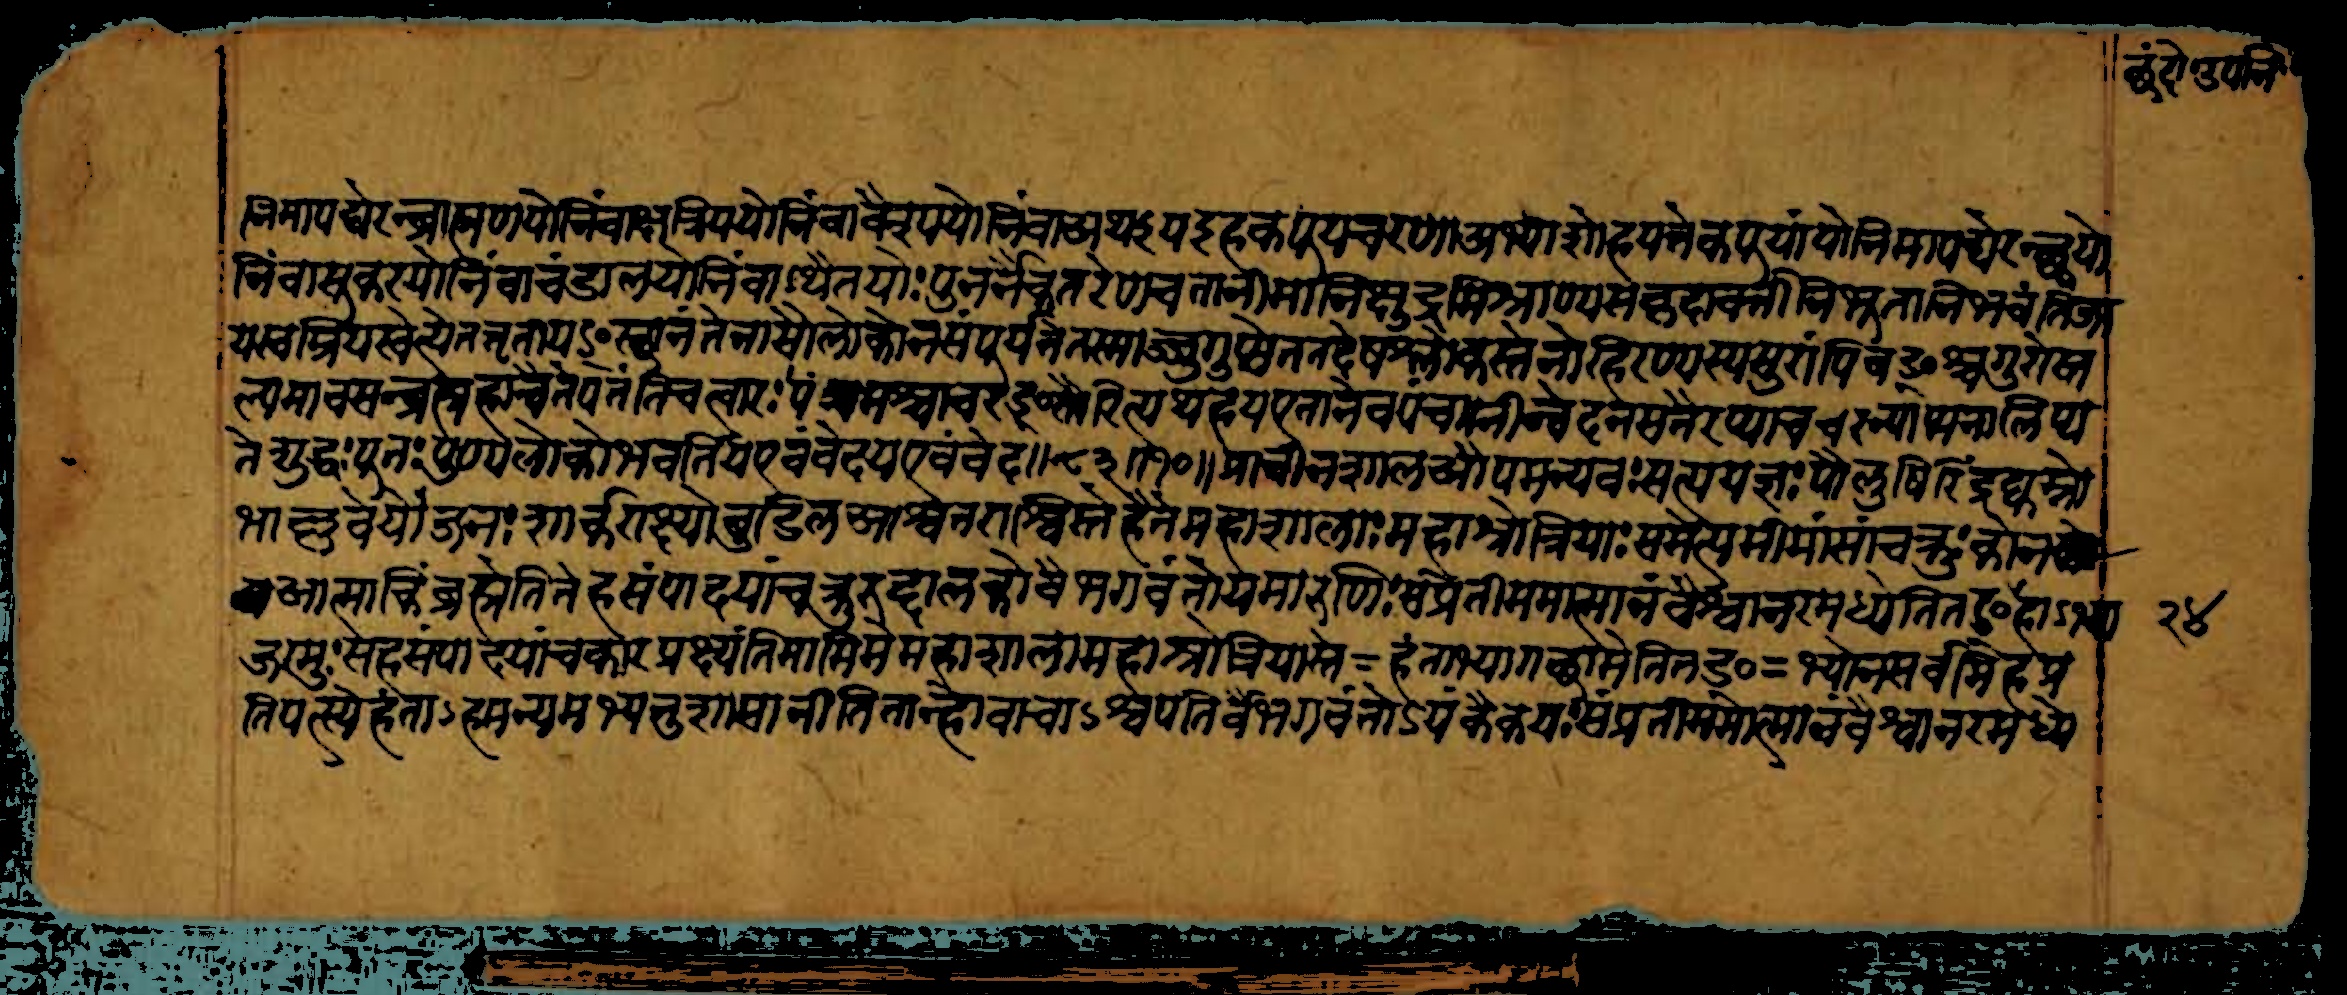 छंदो॰उपनि॰
निमापद्येरन्ब्राह्मणयोनिंवाक्षत्रिययोनिंवावैश्ययोनिंवाअथयइहकपूयचरणाअभ्याशोहयत्तेकपूयांयोनिमापद्येरन्श्वयो
निंवासूकरयोनिंवाचंडालयोनिंवाऽथैतयोः पुनर्नकतरेणचतानीमानिक्षुद्रमिश्राण्यसकृदावर्त्तीनिभूतानिभवंतिजा
यस्वम्रियस्वेत्येतत्तृतीयꣳस्थानंतेनासौलोकोनसंपूर्यतेतस्माज्जुगुप्सेततदेषश्लोकस्तेनोहिरण्यस्यसुरांपिबꣳश्चगुरोस्त
ल्पमावसन्ब्रह्महाचैतेपतंतिचत्वारः पंचमश्चाचरꣳस्तैरित्यथहयएतानेवंपंचाग्नीन्वेदनसतैरप्याचरन्पाप्मनालिप्य
तेशुद्धः पूतः पुण्यलोकोभवतियएवंवेदयएवंवेद॥ ॥१०॥ प्राचीनशालऔपमन्यवः सत्ययज्ञः पौलुषिरिंद्रद्युम्नो
भाल्लवेयोजनः शार्कराक्ष्योबुडिलआश्वतराश्विस्तेहैतेमहाशालाः महाश्रोत्रियाः समेत्यमीमांसांचक्रुः कोन
आत्माकिंब्रह्मेतितेहसंपादयांचक्रुरुद्दालकोवैभगवंतोयमारुणिः संप्रतीममात्मानंवैश्वानरमध्येतितꣳहाऽभ्या
२४
जग्मुः सहसंपादयांचकारप्रक्ष्यंतिमामिमेमहाशालामहाश्रोत्रियास्ते = हंताभ्यागछामेतितꣳ = भ्योनसर्वमिहप्र
तिपत्स्येहंताऽहमन्यमभ्यनुशासानीतितान्होवाचाऽश्वपतिर्वैभगवंतोऽयंकैकयः संप्रतीममात्मानंवैश्वानरमध्ये